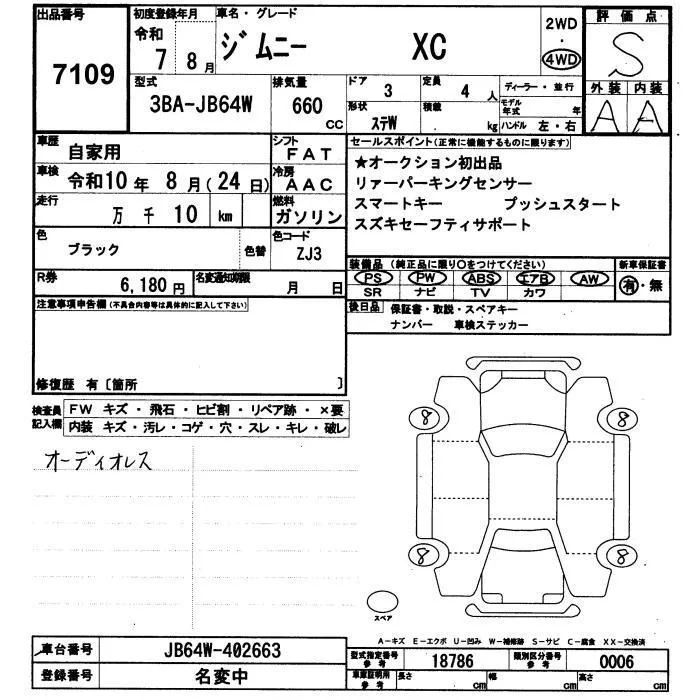 出品番号
7109
初度登録年月
令和
7年 8月
車名・グレード
ジムニー XC
2WD
・
4WD
評価点
S
外装 内装
A A
型式
3BA-JB64W
排気量
660
CC
ドア
3
形状
ステW
定員
4 人
積載
kg
ディーラー・並行
モデル年式 年
ハンドル 左・右
車歴
自家用
シフト
FAT
車検 令和10年 8月(24日)
冷房
AAC
走行
万 千 10 km
燃料
ガソリン
色
ブラック
色替
色コード
ZJ3
R券
6,180 円
名変通知期限
月 日
セールスポイント(正常に機能するものに限ります)
★オークション初出品
リァーパーキングセンサー
スマートキー プッシュスタート
スズキセーフティサポート
装備品 (純正品に限り〇をつけてください)
PS PW ABS エアB AW
SR ナビ TV カワ
新車保証書
有・無
後日品 保証書・取説・スペアキー
ナンバー 車検ステッカー
注意事項申告欄(不具合内容等は具体的に記入して下さい)
修復歴 有〔箇所 〕
検査員記入欄
FW キズ・飛石・ヒビ割・リペア跡・×要
内装 キズ・汚レ・コゲ・穴・スレ・キレ・破レ
オーディオレス
8 8
8 8
スペア
A-キズ E-エクボ U-凹み W-補修跡 S-サビ C-腐食 XX-交換済
車台番号
JB64W-402663
登録番号
名変中
型式指定番号
参考
18786
類別区分番号
参考
0006
車庫証明用
参考
長さ cm
幅 cm
高さ cm